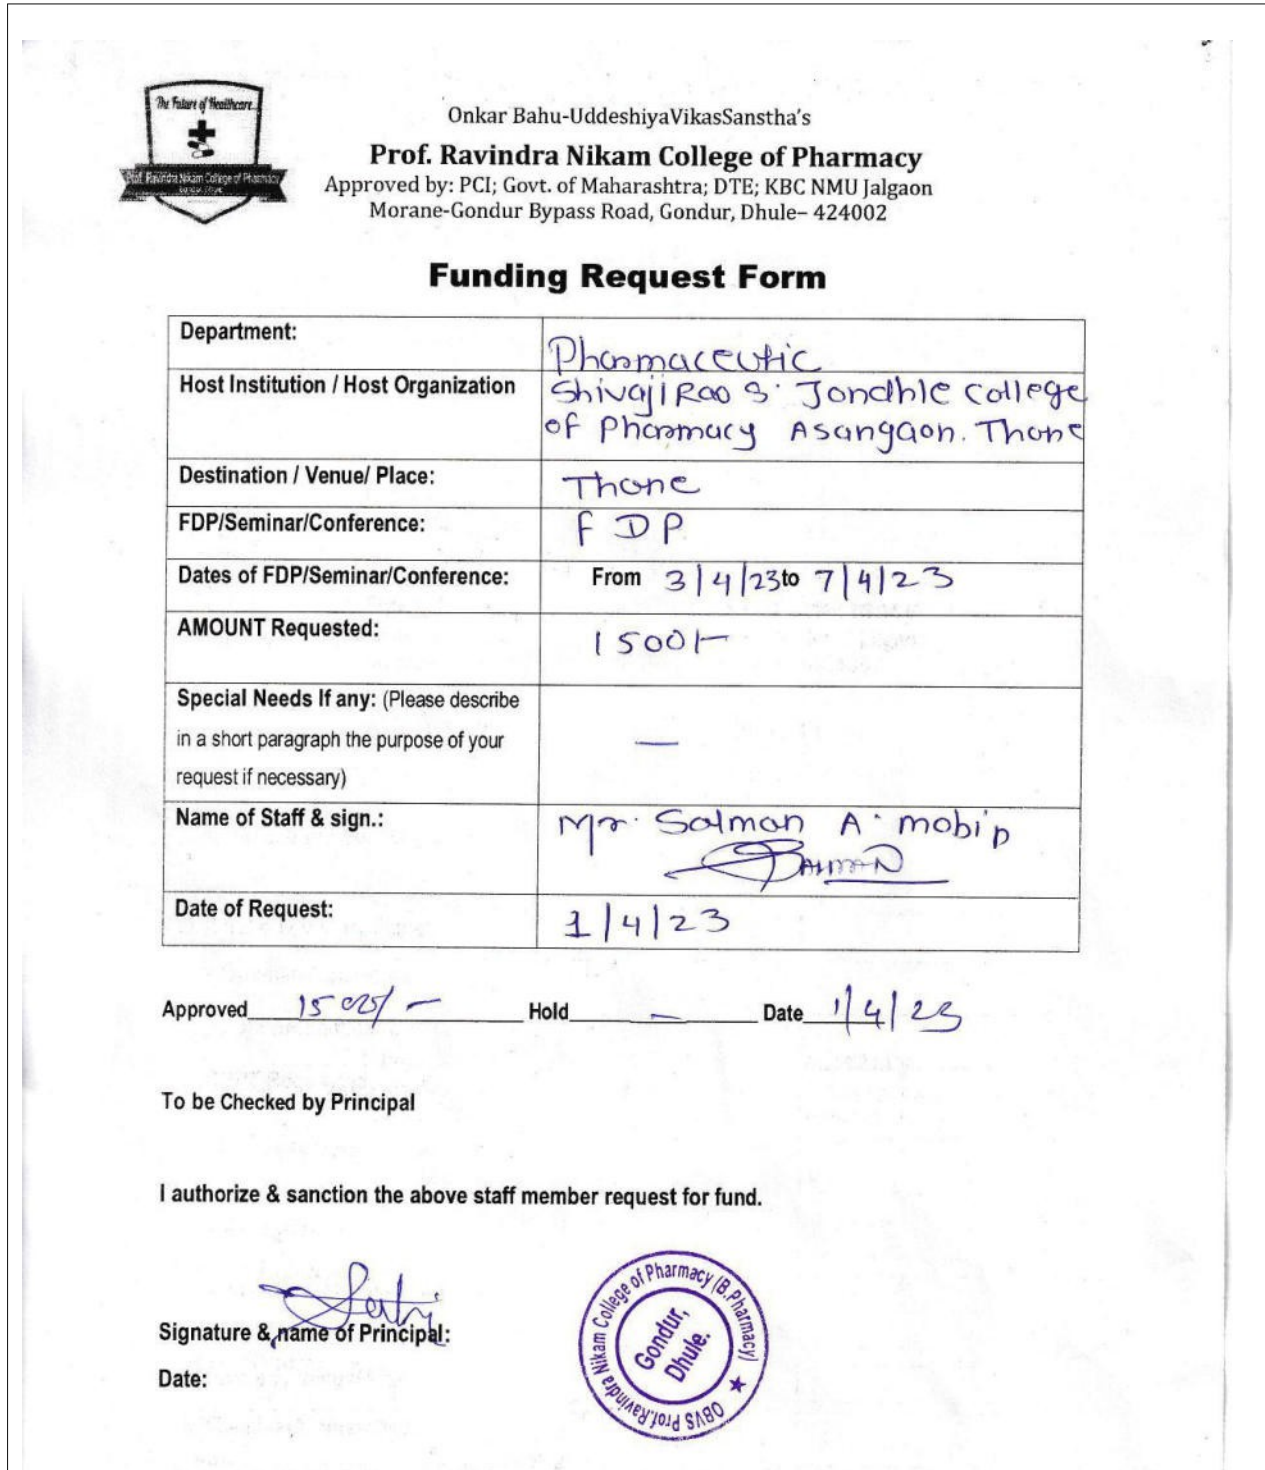 The Future of Healthcare
Prof. Ravindra Nikam College of Pharmacy
Gondur, Dhule
Onkar Bahu-UddeshiyaVikasSanstha's
Prof. Ravindra Nikam College of Pharmacy
Approved by: PCI; Govt. of Maharashtra; DTE; KBC NMU Jalgaon
Morane-Gondur Bypass Road, Gondur, Dhule– 424002
Funding Request Form
Department: Pharmaceutic
Host Institution / Host Organization Shivaji Rao S. Jondhle College
of Pharmacy Asangaon. Thane
Destination / Venue/ Place: Thane
FDP/Seminar/Conference: FDP
Dates of FDP/Seminar/Conference: From 3/4/23 to 7/4/23
AMOUNT Requested: 1500/-
Special Needs If any: (Please describe
in a short paragraph the purpose of your —
request if necessary)
Name of Staff & sign.: Mr. Salman A. mobin
Salman
Date of Request: 1/4/23
Approved 1500/- Hold — Date 1/4/23
To be Checked by Principal
I authorize & sanction the above staff member request for fund.
Signature & name of Principal:
Date:
OBVS Prof.Ravindra Nikam College of Pharmacy (B.Pharmacy) ★
Gondur,
Dhule.